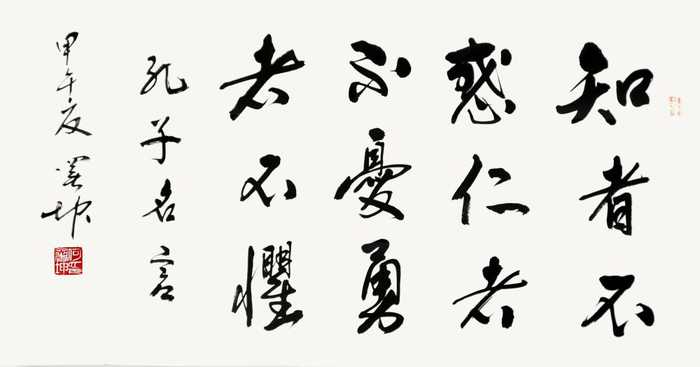 知者不
惑仁者
不憂勇
者不懼
孔子名言
甲午夏 晋坤